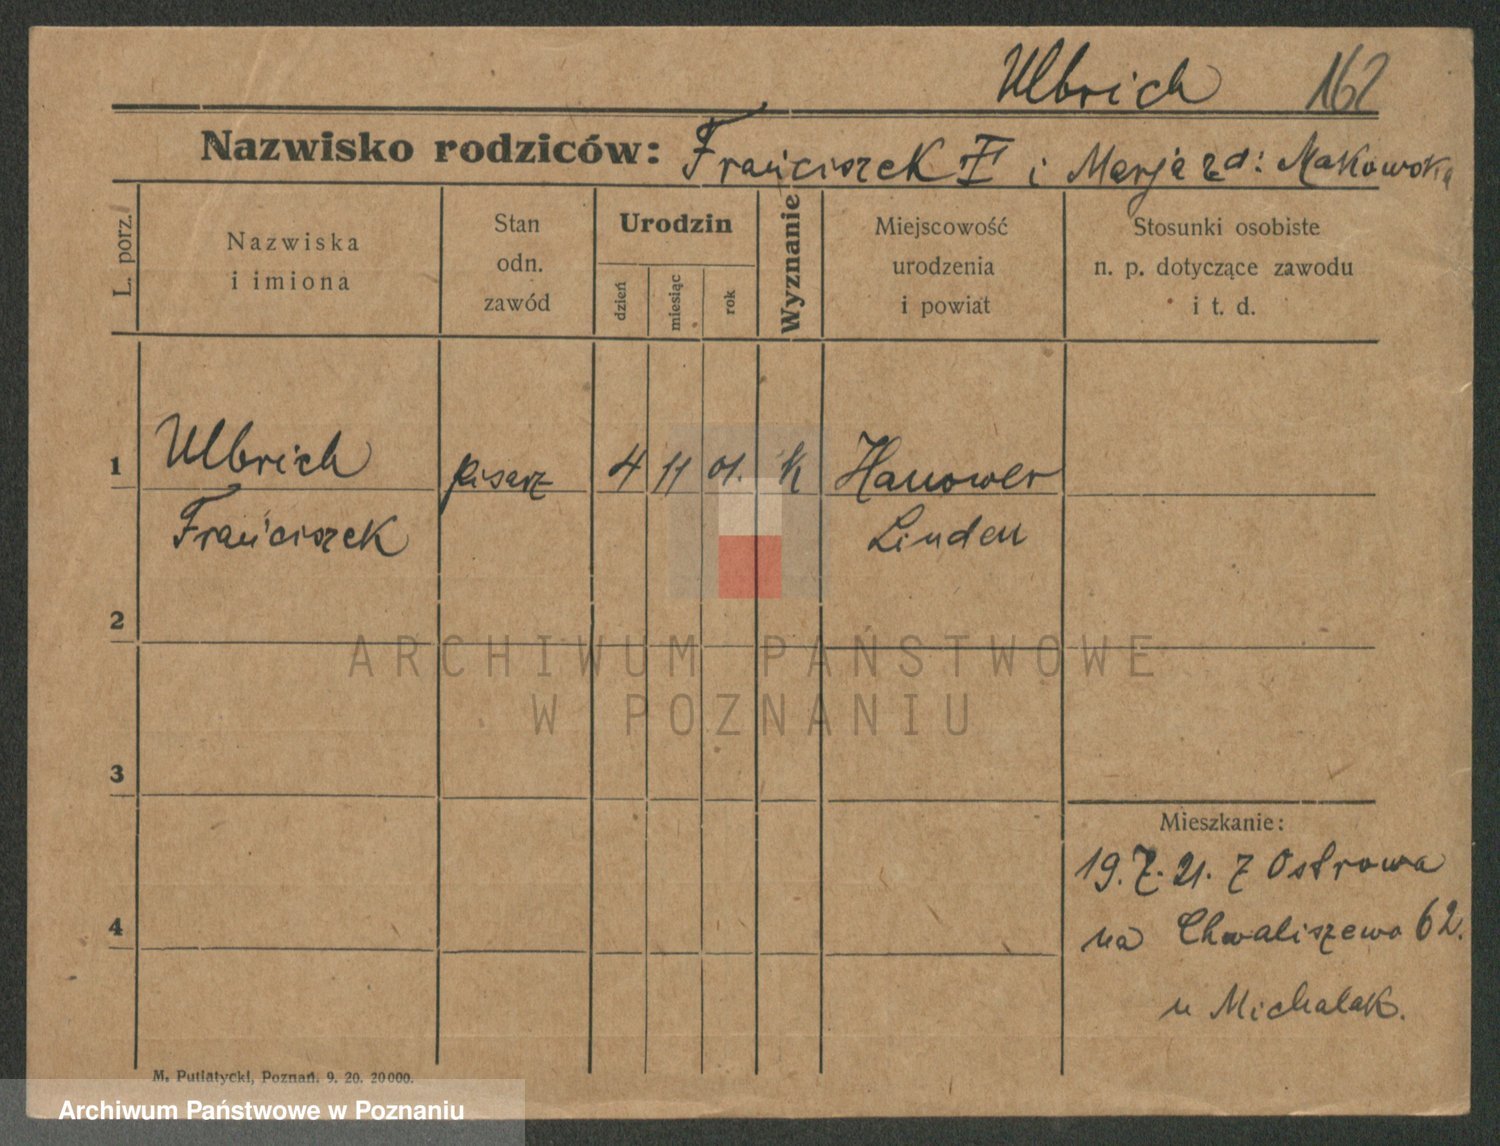 Ulbrich 162
Nazwisko rodziców: Franciszek i Marja zd: Makowska
L. porz.
Nazwiska
i imiona
Stan
odn.
zawód
Urodzin
dzień
miesiąc
rok
Wyznanie
Miejscowość
urodzenia
i powiat
Stosunki osobiste
n. p. dotyczące zawodu
i t. d.
1 Ulbrich pisarz 4 11 01. k Hanower
Franciszek Linden
2
ARCHIWUM PAŃSTWOWE
W POZNANIU
3
Mieszkanie:
19.7.21. z Ostrowa
4
na Chwaliszewo 62.
u Michalak.
M. Putiatycki, Poznań. 9. 20. 20000.
Archiwum Państwowe w Poznaniu